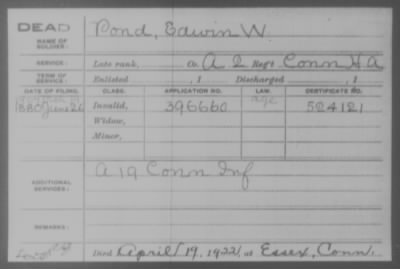 DEAD
NAME OF SOLDIER: Pond, Edwin W.
SERVICE: Late rank, Co. A 2 Reg't Conn H A
TERM OF SERVICE: Enlisted , 1 Discharged , 1
DATE OF FILING. CLASS. APPLICATION NO. LAW. CERTIFICATE NO.
1880 June 26 Invalid, 396660 age 524121
Widow,
Minor,
ADDITIONAL SERVICES: A 19 Conn Inf
REMARKS:
Died April 19, 1922, at Essex, Conn.